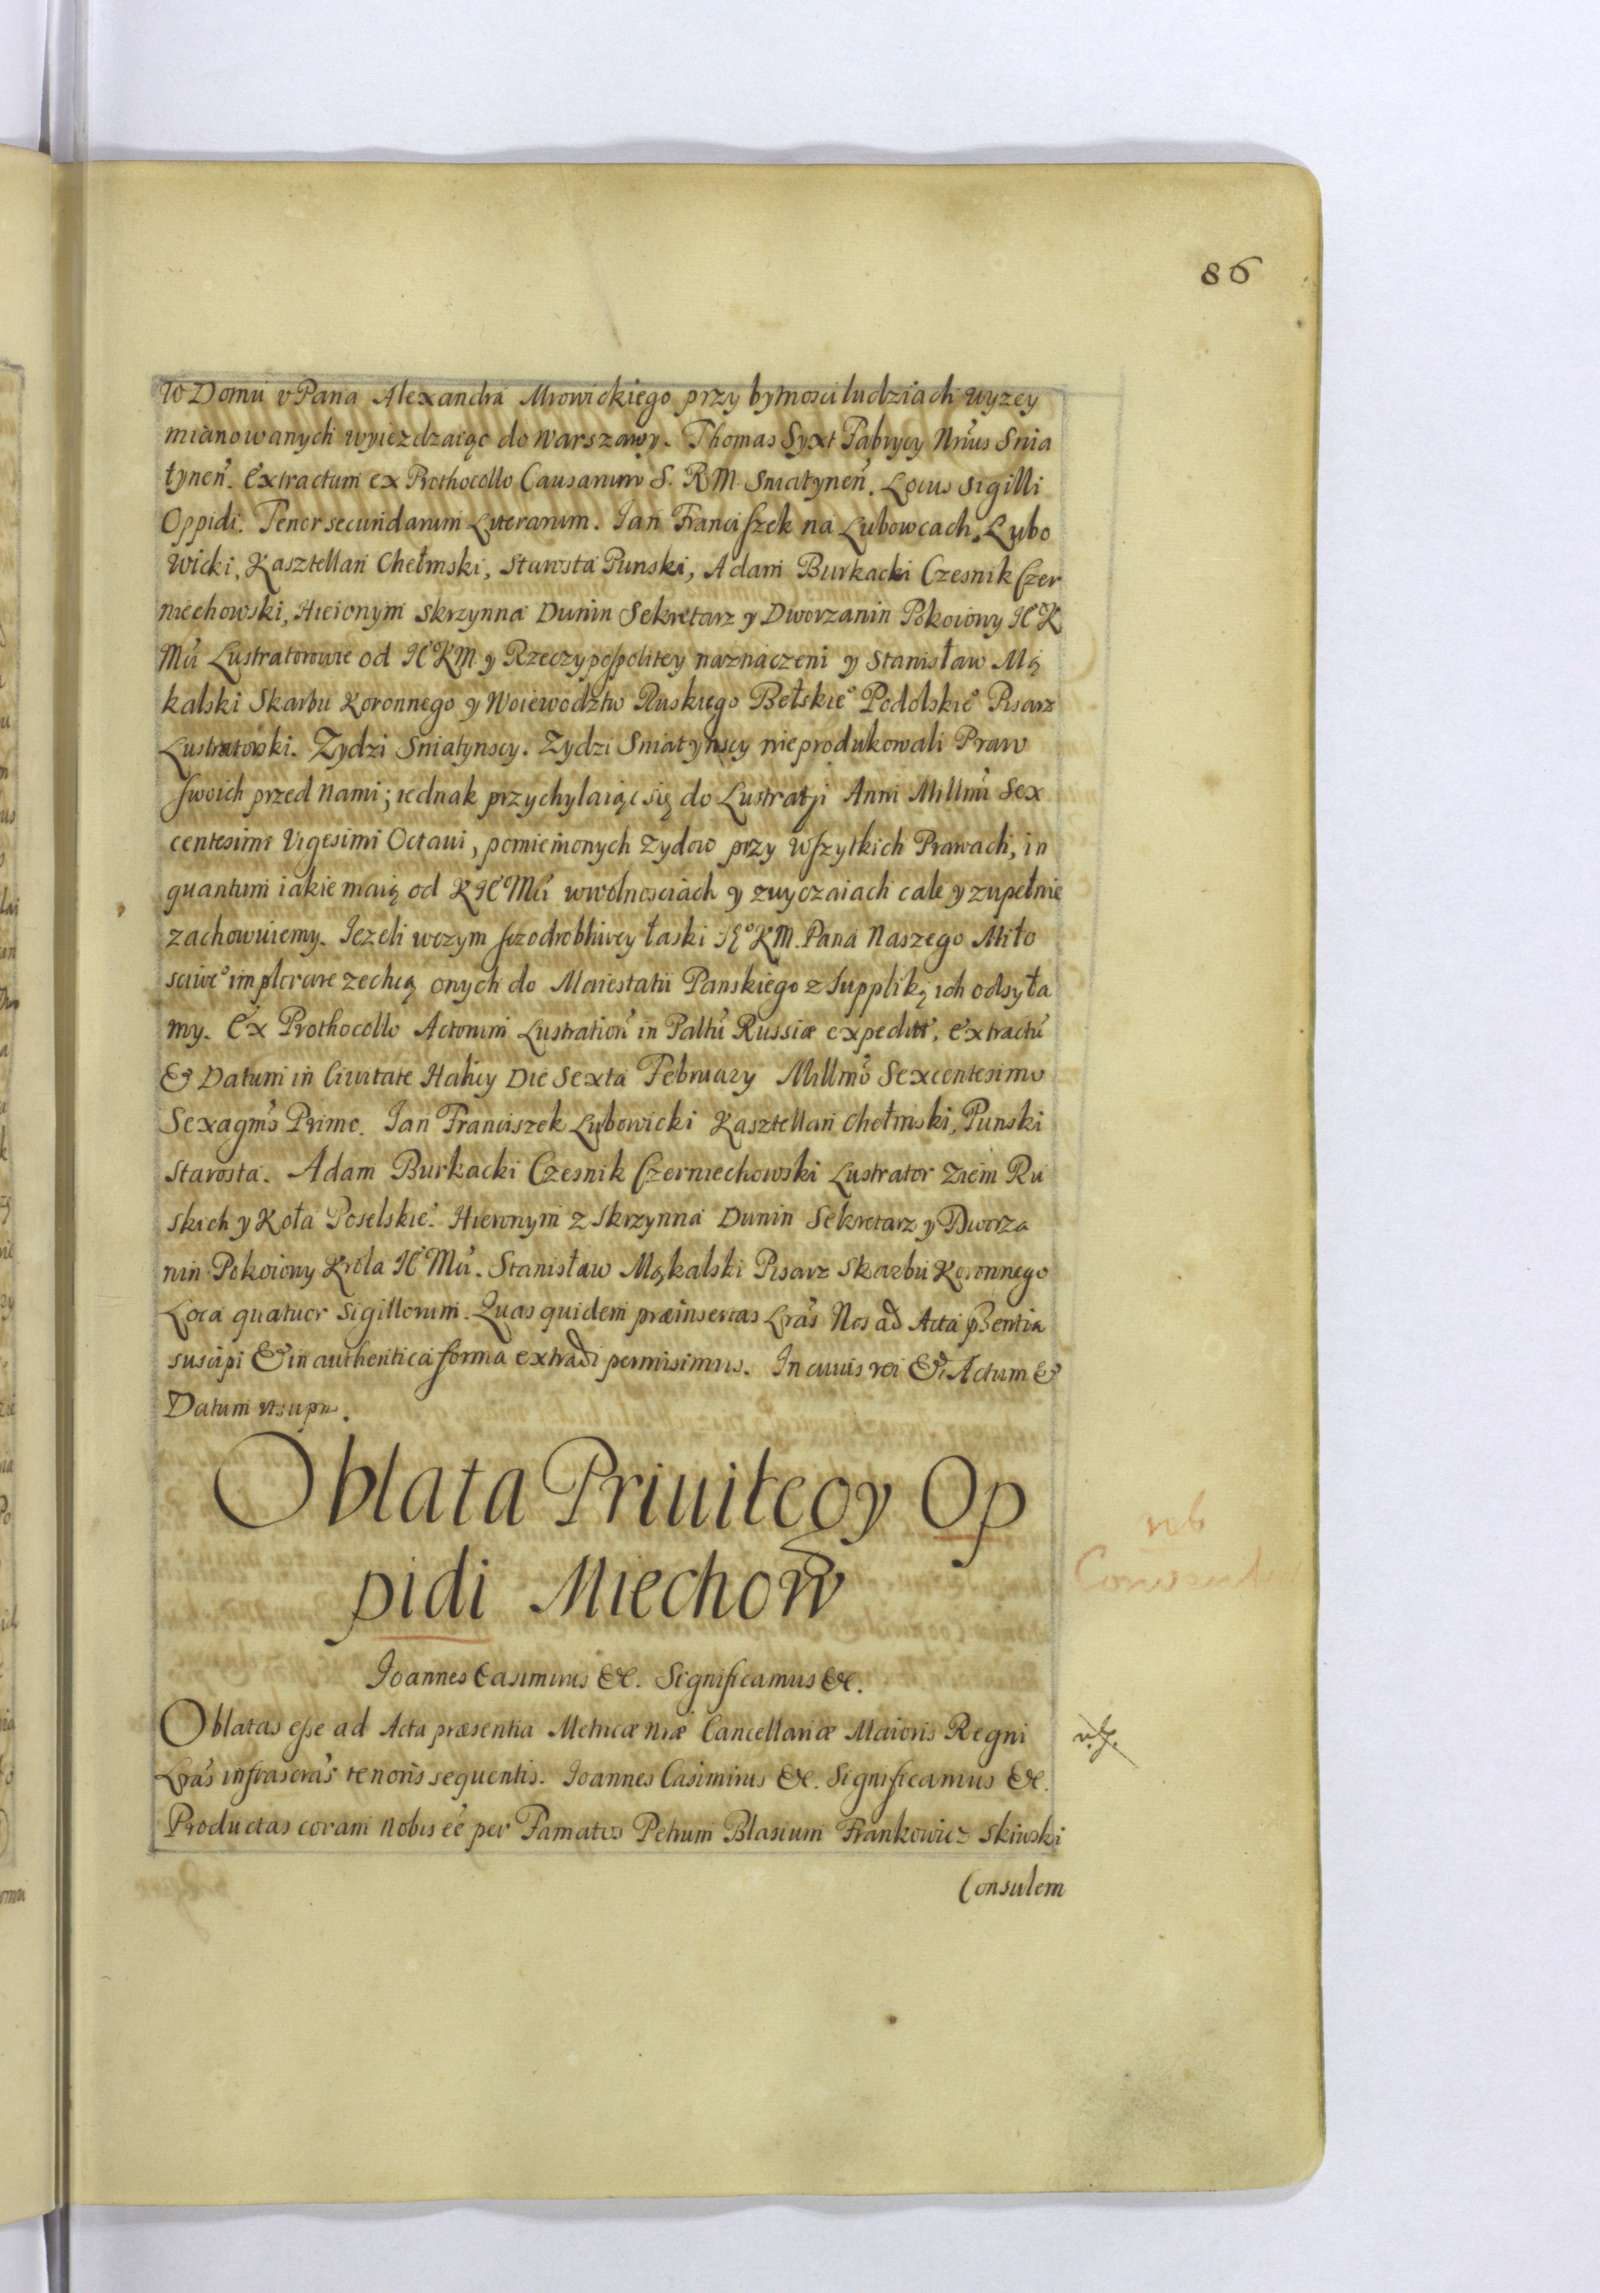 86
W Domu v Pana Alexandra Mrowickiego przy bytnosci ludziach wyzey
mianowanych wyiezdzaiąc do Warszawy. Thomas Syxt Fabrycy Nrius Snia
tynen. Extractum ex Prothocollo Causarum S. R M. Sniatynen. Locus Sigilli
Oppidi. Tenor secundarum Literarum. Ian Franciszek na Lubowcach Lubo
wicki, Kasztellan Chełmski, Starosta Punski, Adam Burkacki Czesnik Czer
niechowski, Hieronym Skrzynna Dunin Sekretarz y Dworzanin Pokoiowy IE K
Mci Lustratorowie od IE KM y Rzeczypospolitey naznaczeni y Stanisław Mą
kalski Skarbu Koronnego y Woiewodztw Ruskiego Bełskie° Podolskie° Pisarz
Lustratorski. Zydzi Sniatynscy. Zydzi Sniatynscy nie produkowali Praw
swoich przed nami; iednak przychylaiąc się do Lustratji Anni Millmi Sex
centesimi Vigesimi Octaui, pomienionych Zydow przy wszytkich Prawach, in
quantum iakie maią od K IE Mci wwolnosciach y zwyczaiach cale y zupełnie
zachowuiemy. Iezeli wczym szczodrobliwey łaski IE° KM. Pana Naszego Miło
sciwe° implorare zechcą onych do Maiestatu Panskiego z Suppliką ich odsyła
my. Ex Prothocollo Actorum Lustration in Paltu Russiæ expedit, extractu
& Datum in Ciuitate Halicy Die Sexta February Millmo Sexcentesimo
Sexagmo Primo. Ian Franciszek Lubowicki Kasztellan Chełmski, Punski
Starosta. Adam Burkacki Czesnik Czerniechowski Lustrator Ziem Ru
skich y Koła Poselskie°. Hieronym z Skrzynna Dunin Sekretarz y Dworza
nin Pokoiowy Krola IE Mci. Stanisław Mąkalski Pisarz Skarbu Koronnego
Loca quatuor Sigillorum. Quas quidem præinsertas Lras Nos ad Acta pñtia
suscipi & in authentica forma extradi permisimus. In cuius rei &c. Actum &
Datum ut supra.
Oblata Priuilegy Op
pidi Miechow
nb
Joannes Casimirus &c. Significamus &c.
Oblatas esse ad Acta præsentia Metricæ nræ Cancellariæ Maioris Regni
Lras infrascras tenoris sequentis. Joannes Casimirus &c. Significamus &c.
Productas coram Nobis ee per Famatos Petrum Blasium Frankowicz Skiwski
Consulem